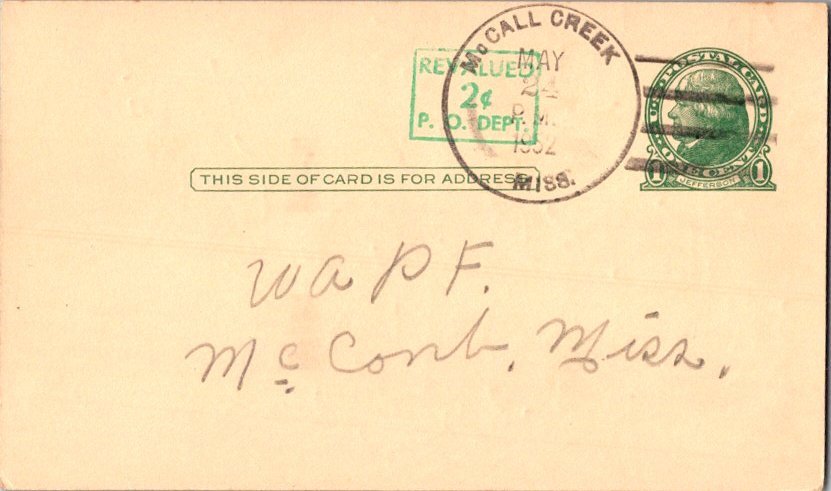 McCALL CREEK
MAY
24
P.M.
1952
MISS.
REVALUED
2¢
P. O. DEPT.
U.S. POSTAL CARD
ONE CENT
1 JEFFERSON 1
THIS SIDE OF CARD IS FOR ADDRESS
WAPF.
McComb, Miss.